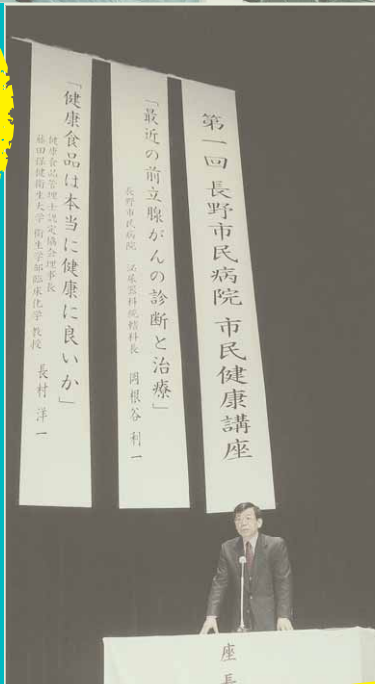 第一回 長野市民病院 市民健康講座
「最近の前立腺がんの診断と治療」
長野市民病院 泌尿器科統括科長 岡根谷 利一
「健康食品は本当に健康に良いか」
健康食品管理士認定協会理事長
藤田保健衛生大学 衛生学部臨床化学 教授 長村 洋一
座長